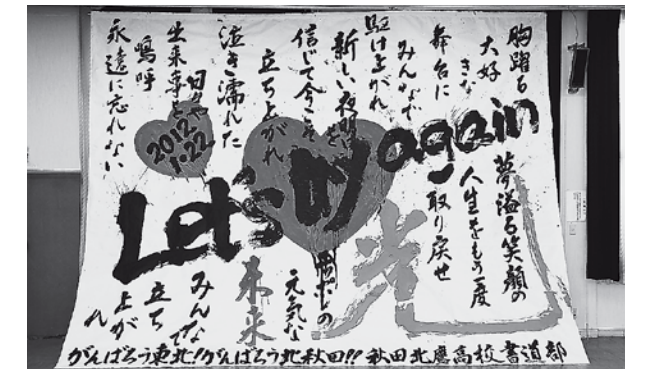 胸躍る
大好きな
舞台に
みんなで
駆け上がれ
新しい夜明けを
信じて今こそ
立ち上がれ
泣き濡れた
日々や
出来事と
嗚呼
永遠に忘れない
2012
1.22
Let's try again
夢溢る笑顔の
人生をもう一度
取り戻せ
光
元気な
未来
みんなで
立ち
上がれ
がんばろう東北!がんばろう北秋田!!秋田北鷹高校書道部